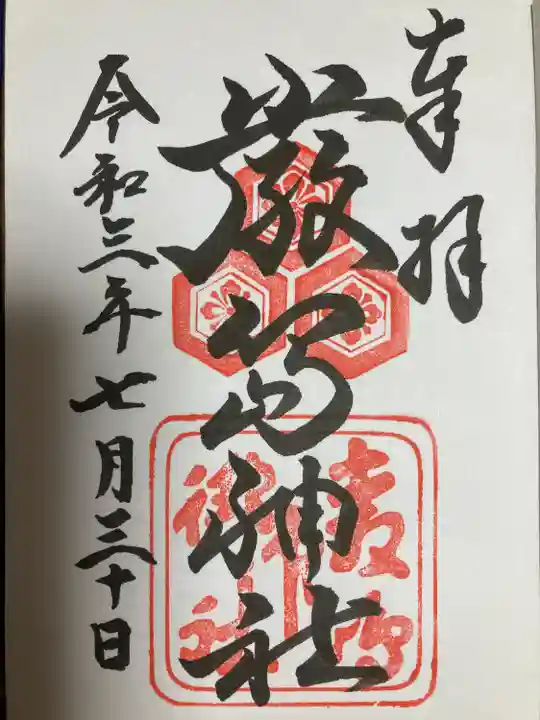 奉拝
厳島神社
令和三年七月三十日